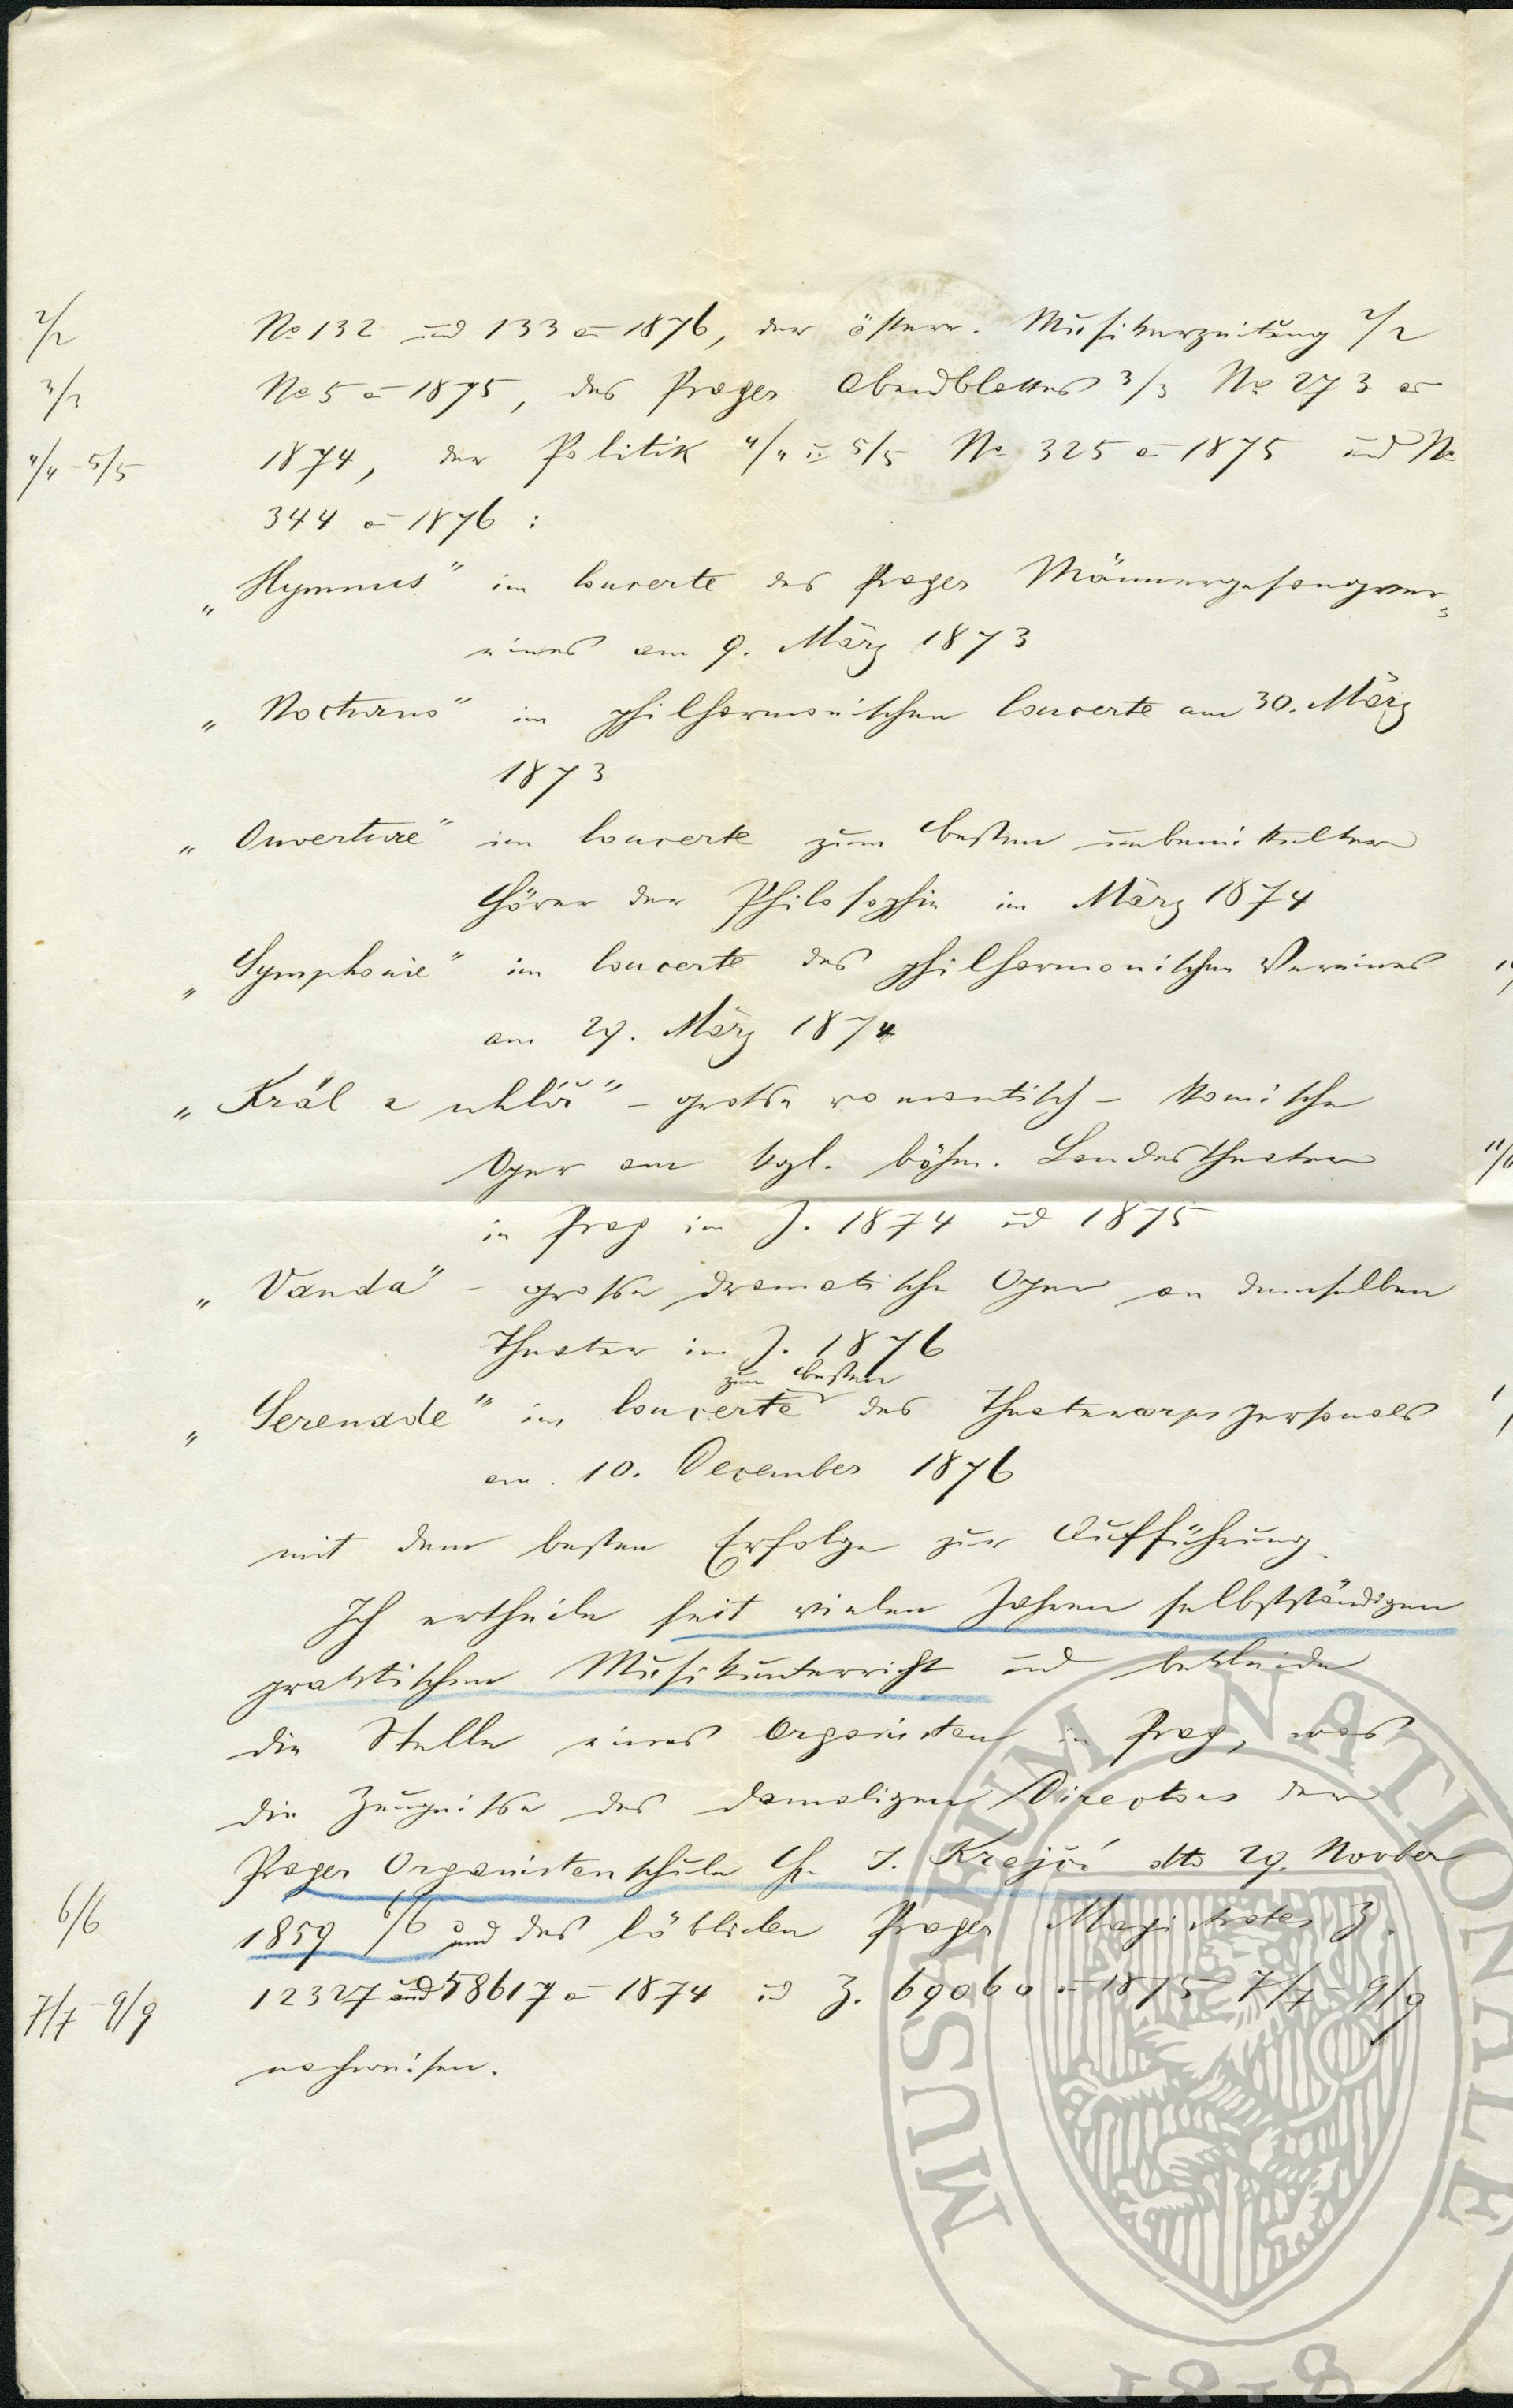 2/2 No 132 und 133 a̅ 1876, der österr. Musikerzeitung 2/2
3/3 No 5 a̅ 1875, des Prager Abendblattes 3/3 No 273 a̅
4/4 - 5/5 1874, der Politik 4/4 u 5/5 No 325 a̅ 1875 und No
344 a̅ 1876 :
„Hymnus" im Concerte des Prager Männergesangver-
eines am 9. März 1873
„Nocturno" im philharmonischen Concerte am 30. März
1873
„Ouverture" im Concerte zum Besten unbemittelter
Hörer der Philosophie im März 1874
„Symphonie" im Concerte des philharmonischen Vereines
am 29. März 1874
„Král a uhlíř" – große romantisch – komische
Oper am kgl. böhm. Landestheater
in Prag im J. 1874 und 1875
„Vanda" – große dramatische Oper an demselben
Theater im J. 1876
zum Besten
„Serenade" im Concerte des Theatercorpspersonals
am 10. December 1876
mit dem besten Erfolge zur Aufführung.
Ich ertheile seit vielen Jahren selbstständigen
praktischen Musikunterricht und bekleide
die Stelle eines Organisten in Prag, was
die Zeugniße des damaligen Directors der
Prager Organistenschule H. J. Krejčí dto 29. Novber
6/6 1859 6/6 und des löblichen Prager Magistrates Z.
7/7 - 9/9 12327 und 58617 a̅ 1874 und Z. 69060 a̅ 1875 7/7 - 9/9
nachweisen.
MUSAEUM NATIONALE
1818